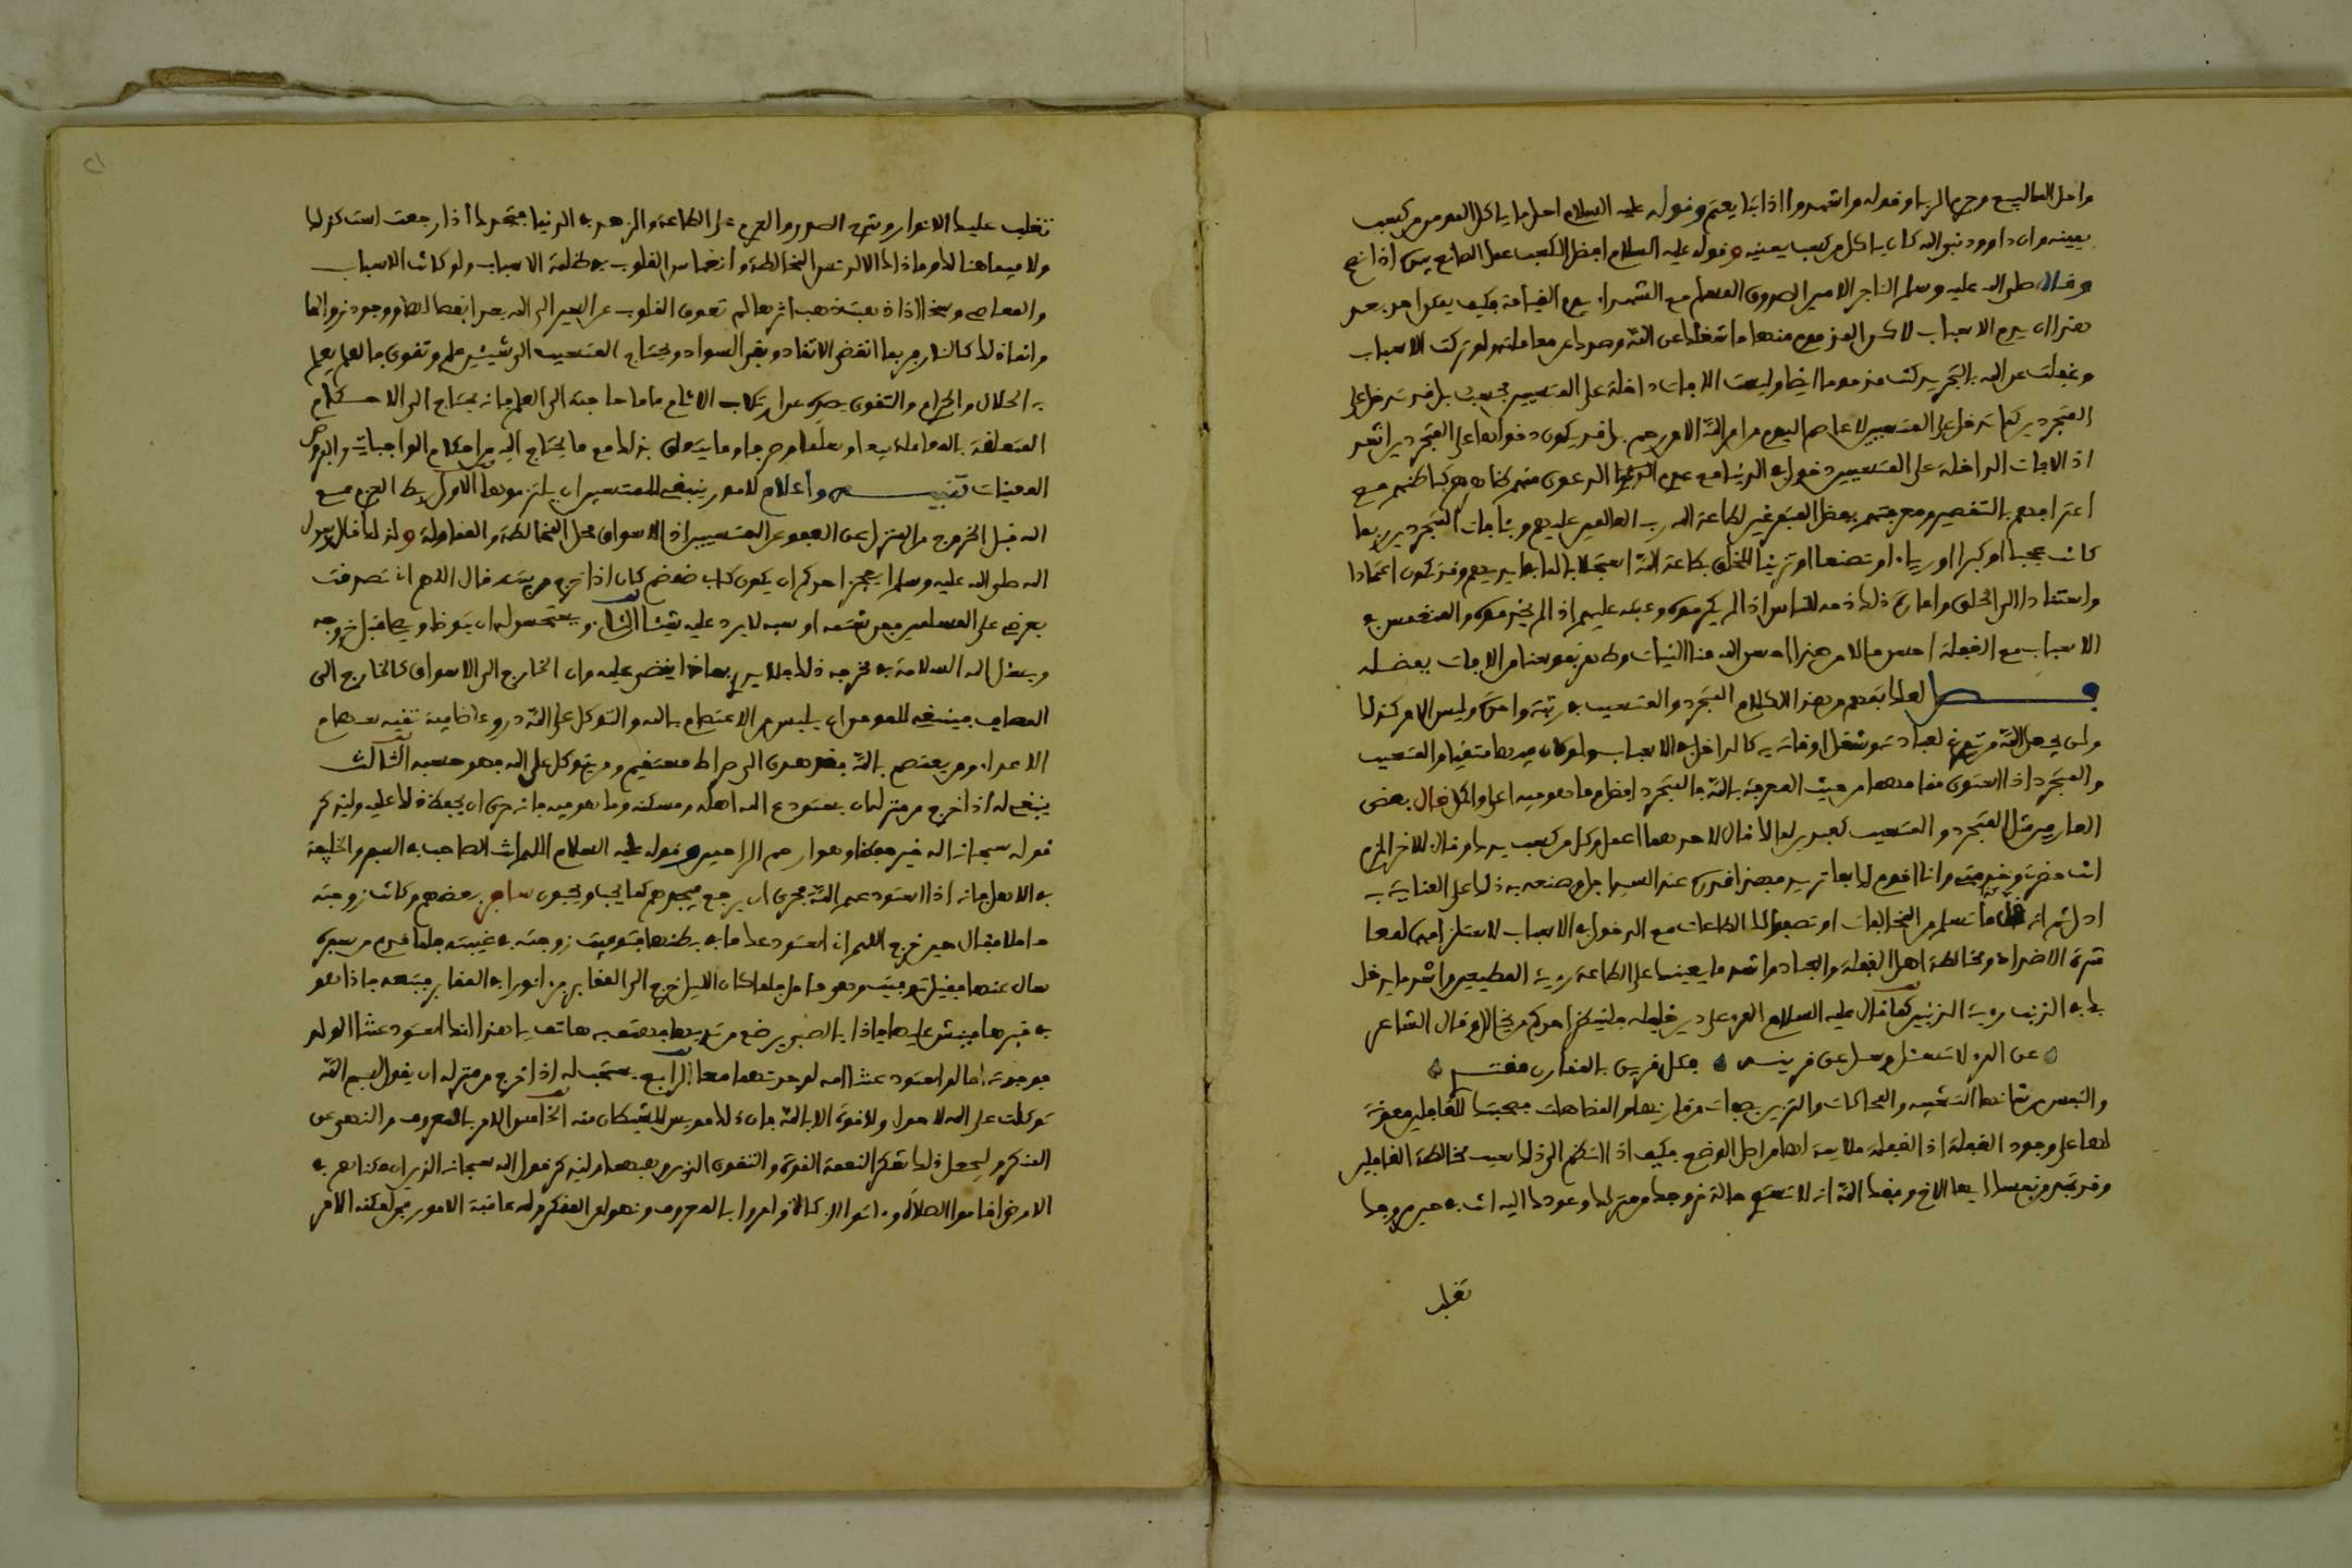 واحل الله البيع وحرم الربا وقوله واشهدوا اذا تبايعتم وقوله عليه السلام احل ما ياكل المومن من كسب
يمينه وان داوود نبي الله كان ياكل من كسب يمينه وقوله عليه السلام افضل الكسب عمل الصانع بيده اذا نصح
وقال صلى الله عليه وسلم التاجر الامين الصدوق المسلم مع الشهداء يوم القيامة فكيف يمكن احد بعد
هذا ان يذم الاسباب لاكن المذموم منها ما شغلك عن الله وصدك عن معاملته ولو تركت الاسباب
وغفلت عن الله بالتجريد كنت مذموما ايضا وليست الافات داخلة على المتسببين فحسب بل قد تدخل على
المتجردين كما تدخل على المتسببين لا عاصم اليوم من امر الله الا من رحم بل قد يكون دخولها على المتجردين اشد
اذ الافات الداخلة على المتسببين دخول في الدنيا مع عدم الدعوى منهم ظاهرهم كباطنهم مع
اعترافهم بالتقصير ومعرفتهم بفضل المتفرغين لطاعة الله رب العالمين عليهم وافات المتجردين ربما
كانت عجبا او كبرا او رياء او تصنعا او تزينا للخلق بطاعة الله استجلابا لما بايديهم وقد يكون اعتمادا
واستنادا الى الخلق وامارة ذلك ذمه للناس اذا لم يكرموه وعتبه عليهم اذا لم يخدموه والمنغمس في
الاسباب مع الغفلة احسن حالا من هذا احسن الله منا النيات وطهر نفوسنا من الافات بفضله
فصل لعلك تفهم من هذا الكلام المتجرد والمتسبب في رتبة واحدة وليس الامر كذلك
ولن يجعل الله من تفرغ لعبادته وشغل اوقاته به كالداخل في الاسباب ولو كان فيها متقيا والمتسبب
والمتجرد اذا استوى مقامهما من حيث المعرفة بالله فالمتجرد افضل وما هو فيه اعلى واكمل قال بعض
العارفين مثل المتجرد والمتسبب كعبدين لملك قال لاحدهما اعمل وكل من كسب يدك وقال للاخر الزم
انت حضرتي وخدمتي وانا اقوم لك بما تريد فهذا قدره عند السيد اجل وصنعه به ذلك على العناية به
ادل ثم انه قل ما تسلم من المخالفات او تصفو لك الطاعات مع الدخول في الاسباب لاستلزامها لمعا
شرة الاضداد ومخالطة اهل الغفلة والعناد واشد ما يعينك على الطاعة روية المطيعين واشد ما يدخل
بك في الذنب روية المذنبين كما قال عليه السلام المرء على دين خليله فلينظر احدكم من يخالل وقال الشاعر
عن المرء لا تسئل وسل عن قرينه فكل قرين بالمقارن مقتد
والنفس من شانها التشبه والمحاكات والتزين بصفات من قارنها والمضاهات فصحبتك للغافلين معونة
لها على وجود الغفلة اذ الغفلة ملايمة لها من اصل الوضع فكيف اذا انضم الى ذلك سبب مخالطة الغافلين
وقد تجد من نفسك ايها الاخ وفقك الله انه لا تستوي حالة خروجك من منزلك وعودك اليه انت في حين خروجك
تغلب
تغلب عليك الانوار وشرح الصدر والعزم على الطاعة والزهد في الدنيا فتجدك اذا رجعت لست كذلك
ولا فيما هنالك وما ذاك الا لدنس المخالطة وانغماس القلوب في ظلمة الاسباب ولو كانت الاسباب
والمعاصي وشخالا اذ بعد ذهب اثرها لم تعوق القلوب عن السير الى الله بعد انفصالها ووجود زوالها
وانما ذلك كالنار ربما انقضى الاتقاد وبقي السواد ويحتاج المتسبب الى شيئين علم وتقوى فالعلم يعلم
به الحلال والحرام والتقوى يصده عن ارتكاب الاثام فاما حاجته الى العلم فانه يحتاج الى الاحكام
المتعلقة بالمعاملة بيعا وسلما وصرفا وما يتعلق بذلك مع ما يحتاج اليه من احكام الواجبات والفروض
المعينات تنبيه واعلام لامور ينبغي للمتسببين ان يلتزموها الاول ربط العزم مع
الله قبل الخروج من المنزل عن العفو عن المتسببين اذ الاسواق محل المخاصمة والمقاولة ولذلك قال رسول
الله صلى الله عليه وسلم ايعجز احدكم ان يكون كابي ضمضم كان اذا خرج من بيته قال اللهم اني تصدقت
بعرضي على المسلمين فمن شتمه او سبه لا يرد عليه شيئا الثاني ويستحسن له ان يتوضا ويصلي قبل خروجه
ويسئل الله السلامة في مخرجه ذلك فلا يدري بماذا يقضى عليه وان الخارج الى الاسواق كالخارج الى
المصاف فينبغي للمومن ان يلبس من الاعتصام بالله والتوكل على الله دروعا ضافية تقيه سهام
الاعداء ومن يعتصم بالله فقد هدي الى صراط مستقيم ومن يتوكل على الله فهو حسبه الثالث
ينبغي له اذا خرج من منزله ان يستودع الله اهله ومسكنه وما هو فيه فانه حري ان يحفظ ذلك عليه وليذكر
قوله سبحانه الله خير حفظا وهو ارحم الراحمين وقوله عليه السلام اللهم انت الصاحب في السفر والخليفة
في الاهل فانه اذا استودعهم الله فحري ان يرجع فيجدهم كما يحب ويحبون سافر بعضهم وكانت زوجته
حاملا فقال حين خرج اللهم اني استودعك ما في بطنها فتوفيت زوجته في غيبته فلما قدم من سفره
سال عنها فقيل توفيت وهي حامل فلما كان الليل خرج الى المقابر فراى نورا في المقابر فتبعه فاذا هو
في قبرها فنبش عليها فاذا بالصبي يرضع من ثديها فهتف به هاتف يا هذا انك استودعتنا الولد
فوجدته اما لو استودعتنا امه لوجدتهما معا الرابع يستحب له اذا خرج من منزله ان يقول بسم الله
توكلت على الله لا حول ولا قوة الا بالله فان ذلك مويس للشيطان منه الخامس الامر بالمعروف والنهي عن
المنكر وليجعل ذلك شكرا لنعمة القوة والتقوى الذي وهبهما وليذكر قول الله سبحانه الذين ان مكناهم في
الارض اقاموا الصلاة وءاتوا الزكاة وامروا بالمعروف ونهوا عن المنكر ولله عاقبة الامور فمن امكنه الامر